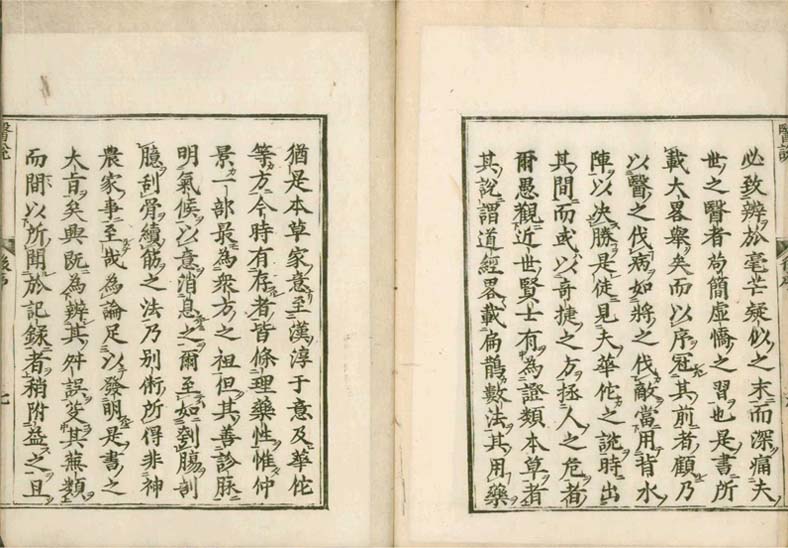 醫說
後序
必致辨於毫芒疑似之末而深痛夫
世之醫者苟簡虛憍之習也是書所
載大畧舉矣而以序冠其前者顧乃
以醫之伐病如將之伐敵當用背水
陣以决勝是徒見夫華佗之詭時出
其間而或以奇捷之方拯人之危者
爾愚觀近世賢士有為證類本草者
其說謂道經畧載扁鵲數法其用藥
猶是本草家意至漢淳于意及華佗
等方今時有存者皆條理藥性惟仲
景一部最為衆方之祖但其善診脉
明氣候以意消息之爾至如刳腸剖
臆刮骨續筋之法乃别術所得非神
農家事至哉為論足以發明是書之
大旨矣興既為辨其舛誤芟其蕪類
而間以所聞於記録者稍附益之且
醫說
後序
七